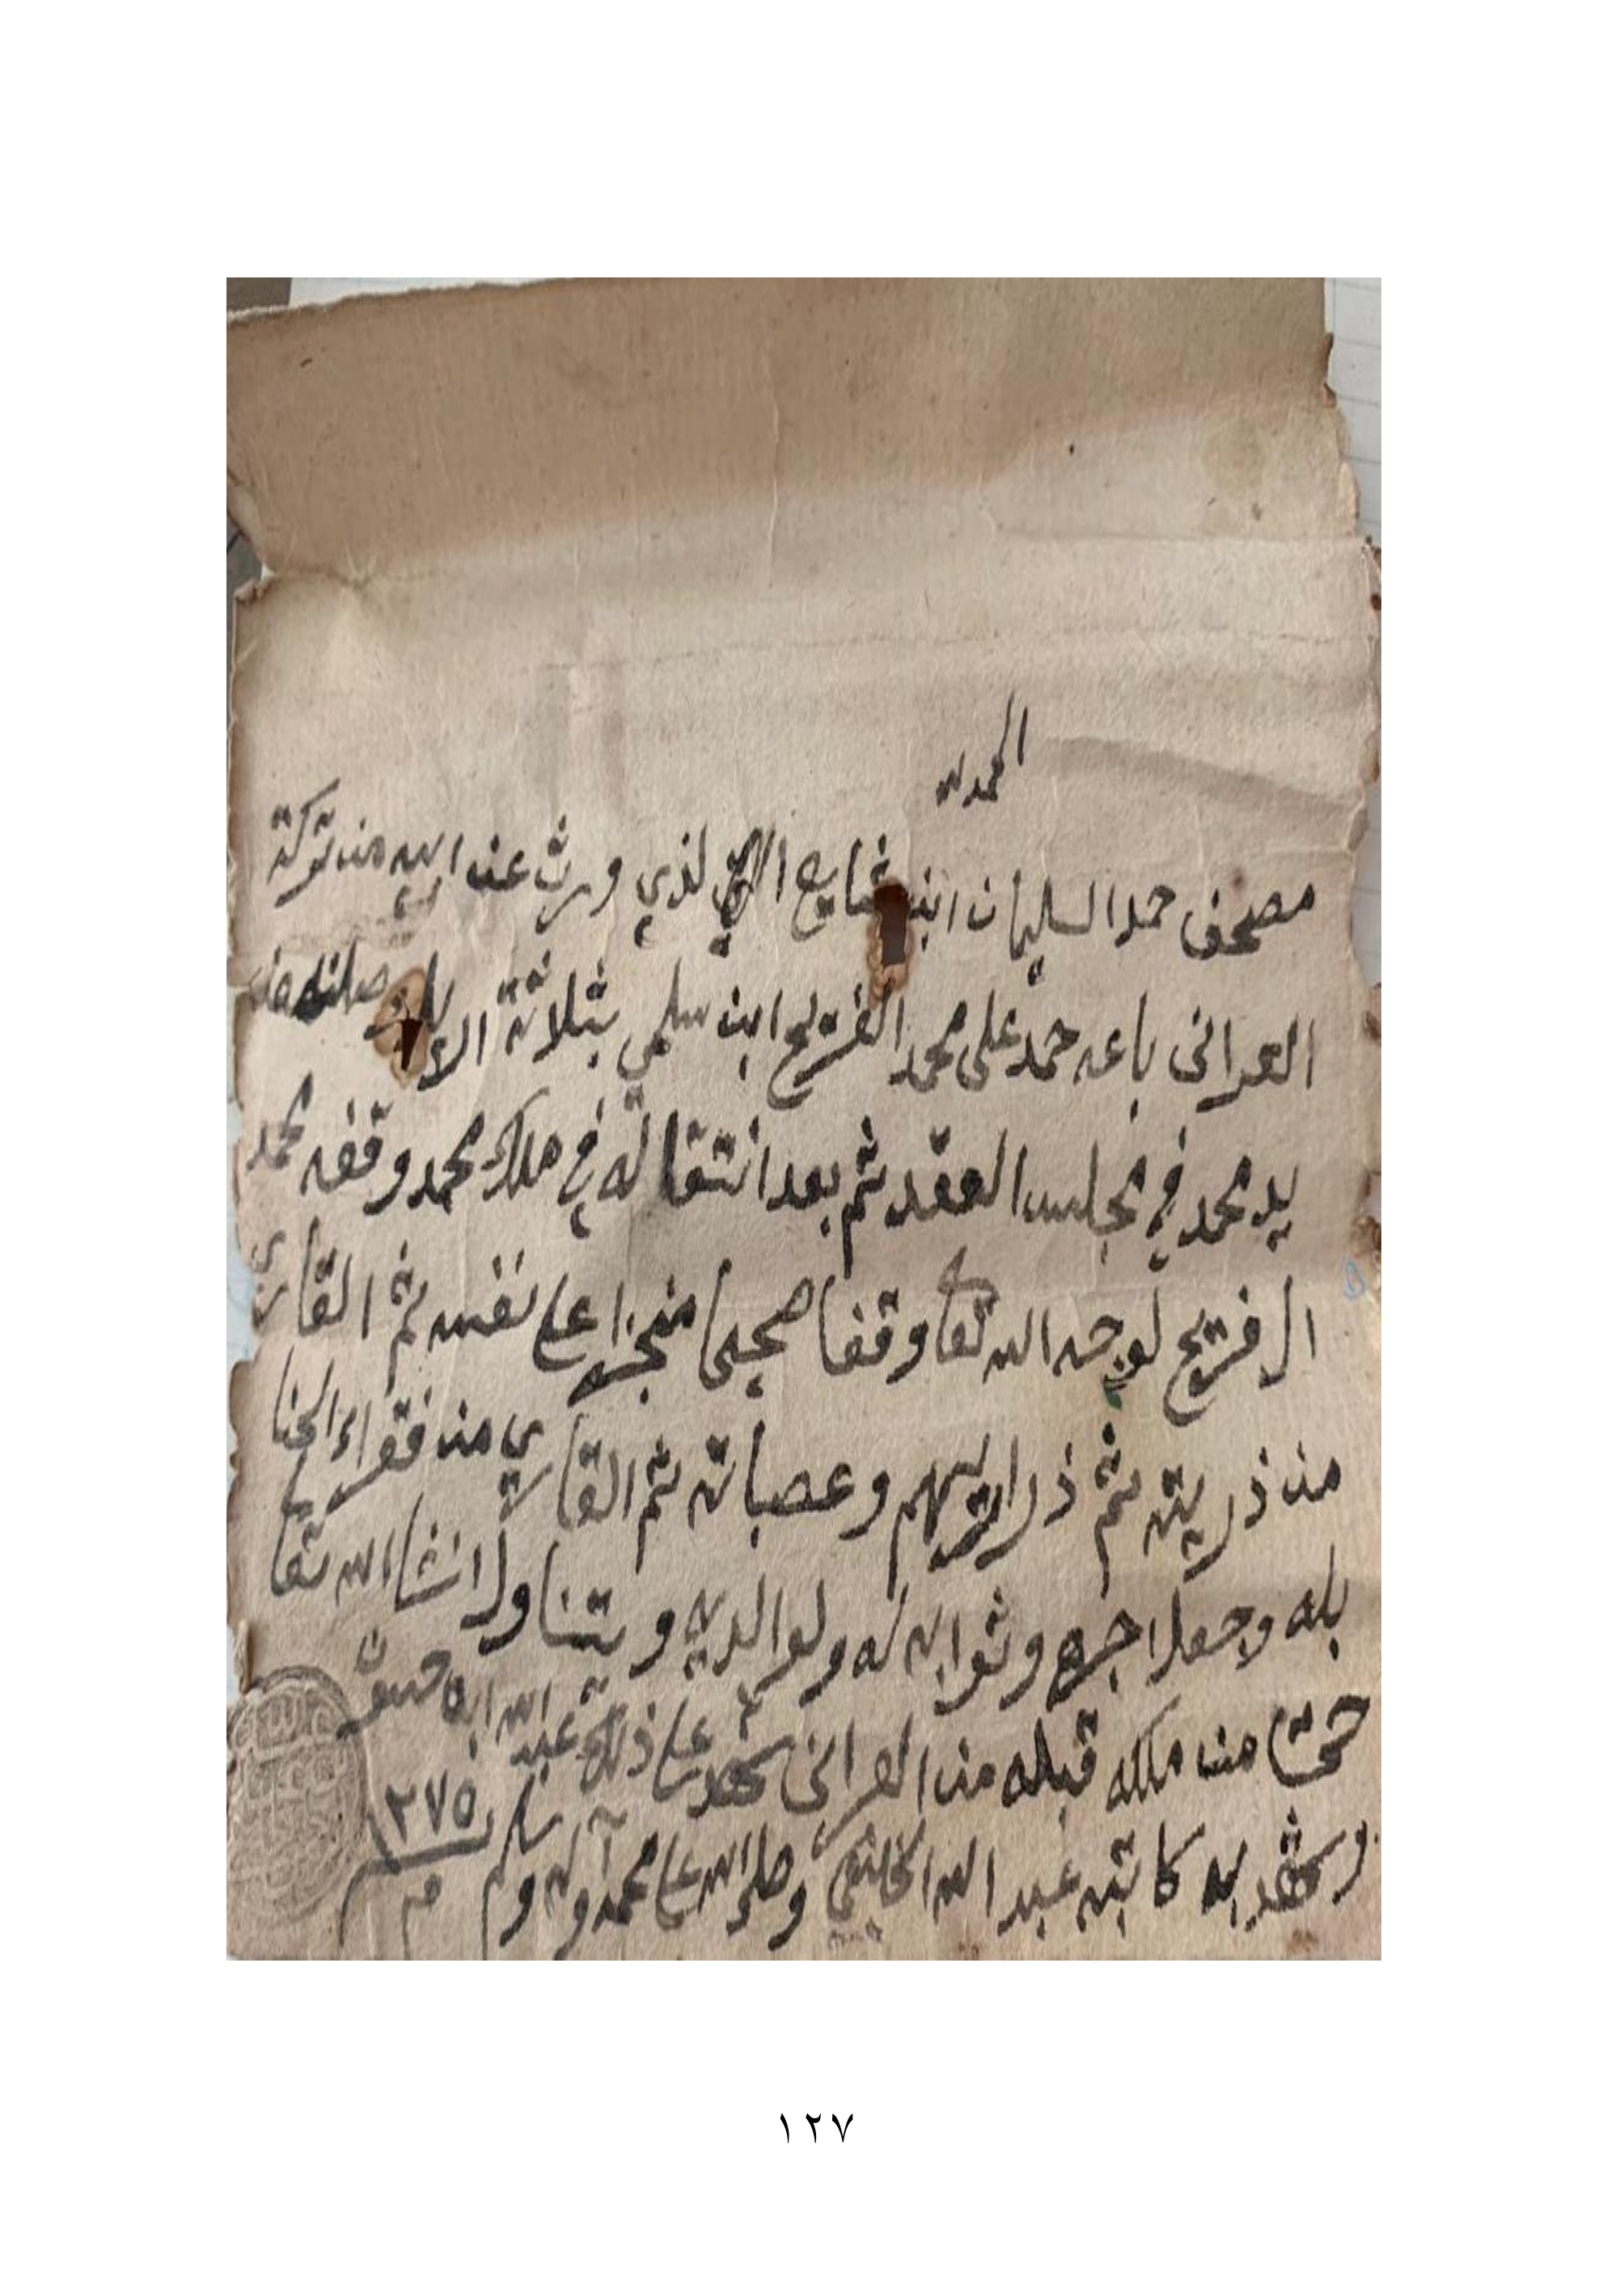 الحمد لله
مصحف حمد السليمان ابن شايع الذي ورث عن ابيه من تركة
العرانى باعه حمد على محمد الفريح ابن سلمي بثلاثة اريل وصلنه من
يد محمد في مجلس العقد ثم بعد انتقاله في ملاك محمد وقفه محمد
ال فريح لوجه الله تعا وقفا صحيحا منجزا على نفسه ثم القاري
من ذريته ثم ذراريهم وعصباته ثم القاري من فقراء الحنا
بله وجعل اجره وثوابه له ولوالديه ويتناول انشا الله تعا
حتى من ملكه قبله من العرانى شهد على ذلك عبد الله ابن
وشهد به كاتبه عبد الله وصلى الله على محمد وآله وسلم
١٢٧٥
م
١٢٧